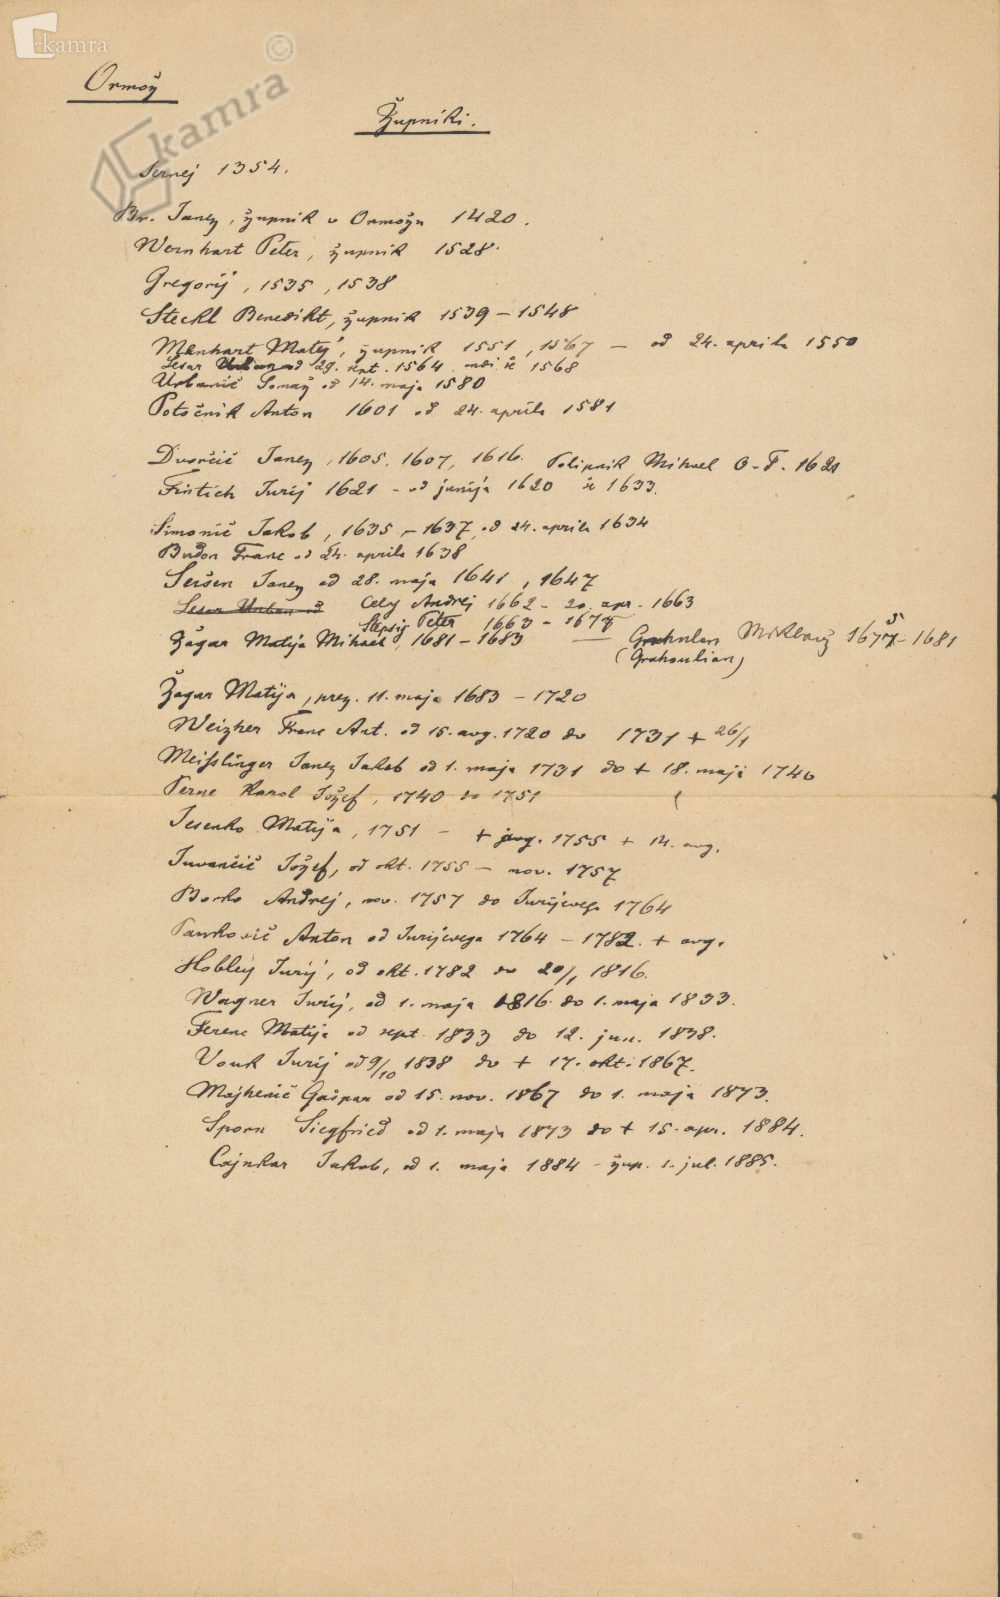 kamra
©
kamra
Ormož
Župniki.
Jernej 1354.
Br. Janez, župnik v Ormožu 1420.
Wernhart Peter, župnik 1528.
Gregorij, 1535, 1538
Steckl Benedikt, župnik 1539 – 1548
Menhart Matej, župnik 1551, 1567 — od 24. aprila 1550
Lesar Urban od 29. sept. 1564 še 1568
Urbanič Tomaž od 14. maja 1580
Potočnik Anton 1601 od 24. aprila 1581
Dvorčič Janez, 1605, 1607, 1616. Polipnik Mihael O.T. 1620
Frintich Jurij 1621 – od junija 1620 še 1633.
Simonič Jakob, 1635, – 1637, od 24. aprila 1634
Budon Franc od 24. aprila 1638
Seršen Janez od 28. maja 1641, 1647
Lesar Urban od Cely Andrej 1662 – 20. apr. 1663
Peter 1663 – 1675
Žagar Matija Mihael, 1681 – 1683 — Grahulan Miklavž 1675 – 1681
(Grahoulian)
Žagar Matija, prez. 11. maja 1683 – 1720
Weizher Franc Ant. od 15. avg. 1720 do 1731 + 26/1
Meisslinger Janez Jakob od 1. maja 1731 do + 18. maja 1740
Perne Karol Jožef, 1740 do 1751
Jesenko Matija, 1751 – + avg. 1755 + 14. avg.
Juvančič Jožef, od okt. 1755 – nov. 1757
Borko Andrej, nov. 1757 do Jurijevega 1764
Pavkovič Anton od Jurijevega 1764 – 1782. + avg.
Hobley Jurij, od okt. 1782 do 20/1 1816.
Wagner Jurij, od 1. maja 1816 do 1. maja 1833.
Ferenc Matija od sept. 1833 do 12. jun. 1838.
Vouk Jurij od 9/10 1838 do + 17. okt. 1867.
Majhenič Gašpar od 15. nov. 1867 do 1. maja 1873.
Sporn Siegfried od 1. maja 1873 do + 15. apr. 1884.
Cajnkar Jakob, od 1. maja 1884 – žup. 1. jul. 1885.